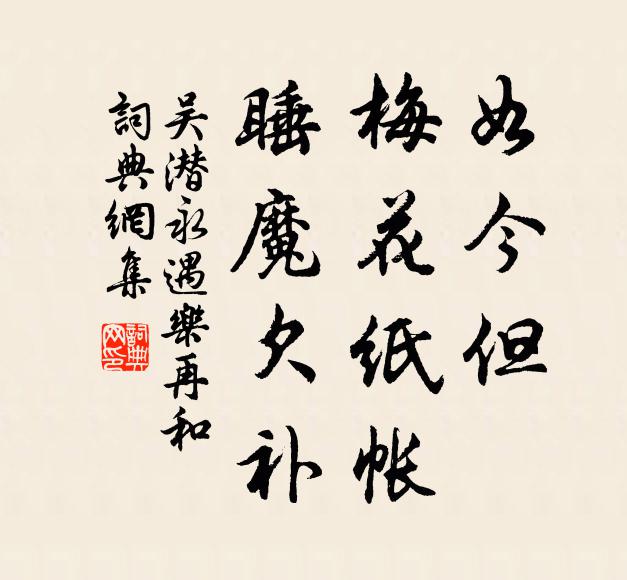 如今但
梅花纸帐
睡魔欠补
吴潜永遇樂再和
詞典網集
詞典网印